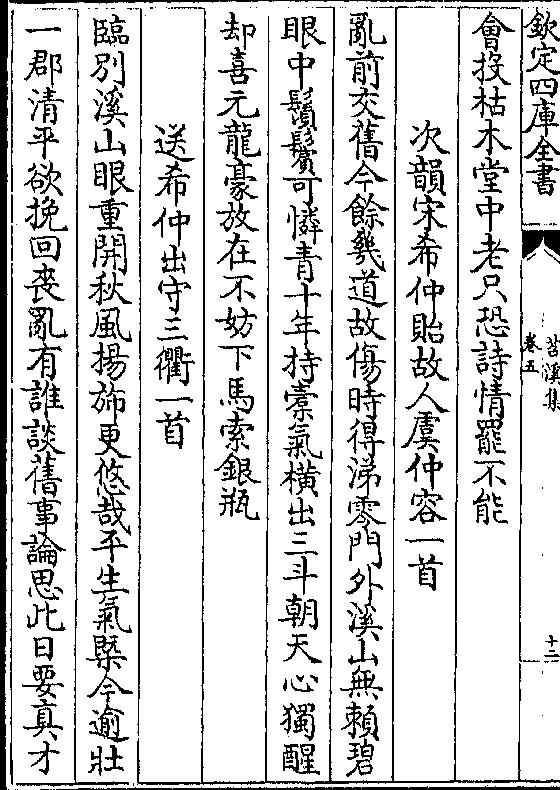 欽定四庫全書
苕溪集
卷五
十二
會投枯木堂中老只恐詩情罷不能
次韻宋希仲貽故人虞仲容一首
亂前交舊今餘幾道故傷時得涕零門外溪山無賴碧
眼中鬚鬢可憐青十年持橐氣橫出三斗朝天心獨醒
却喜元龍豪放在不妨下馬索銀瓶
送希仲出守三衢一首
臨別溪山眼重開秋風揚斾更悠哉平生氣槩今逾壯
一郡清平欲挽回喪亂有誰談舊事論思此日要真才